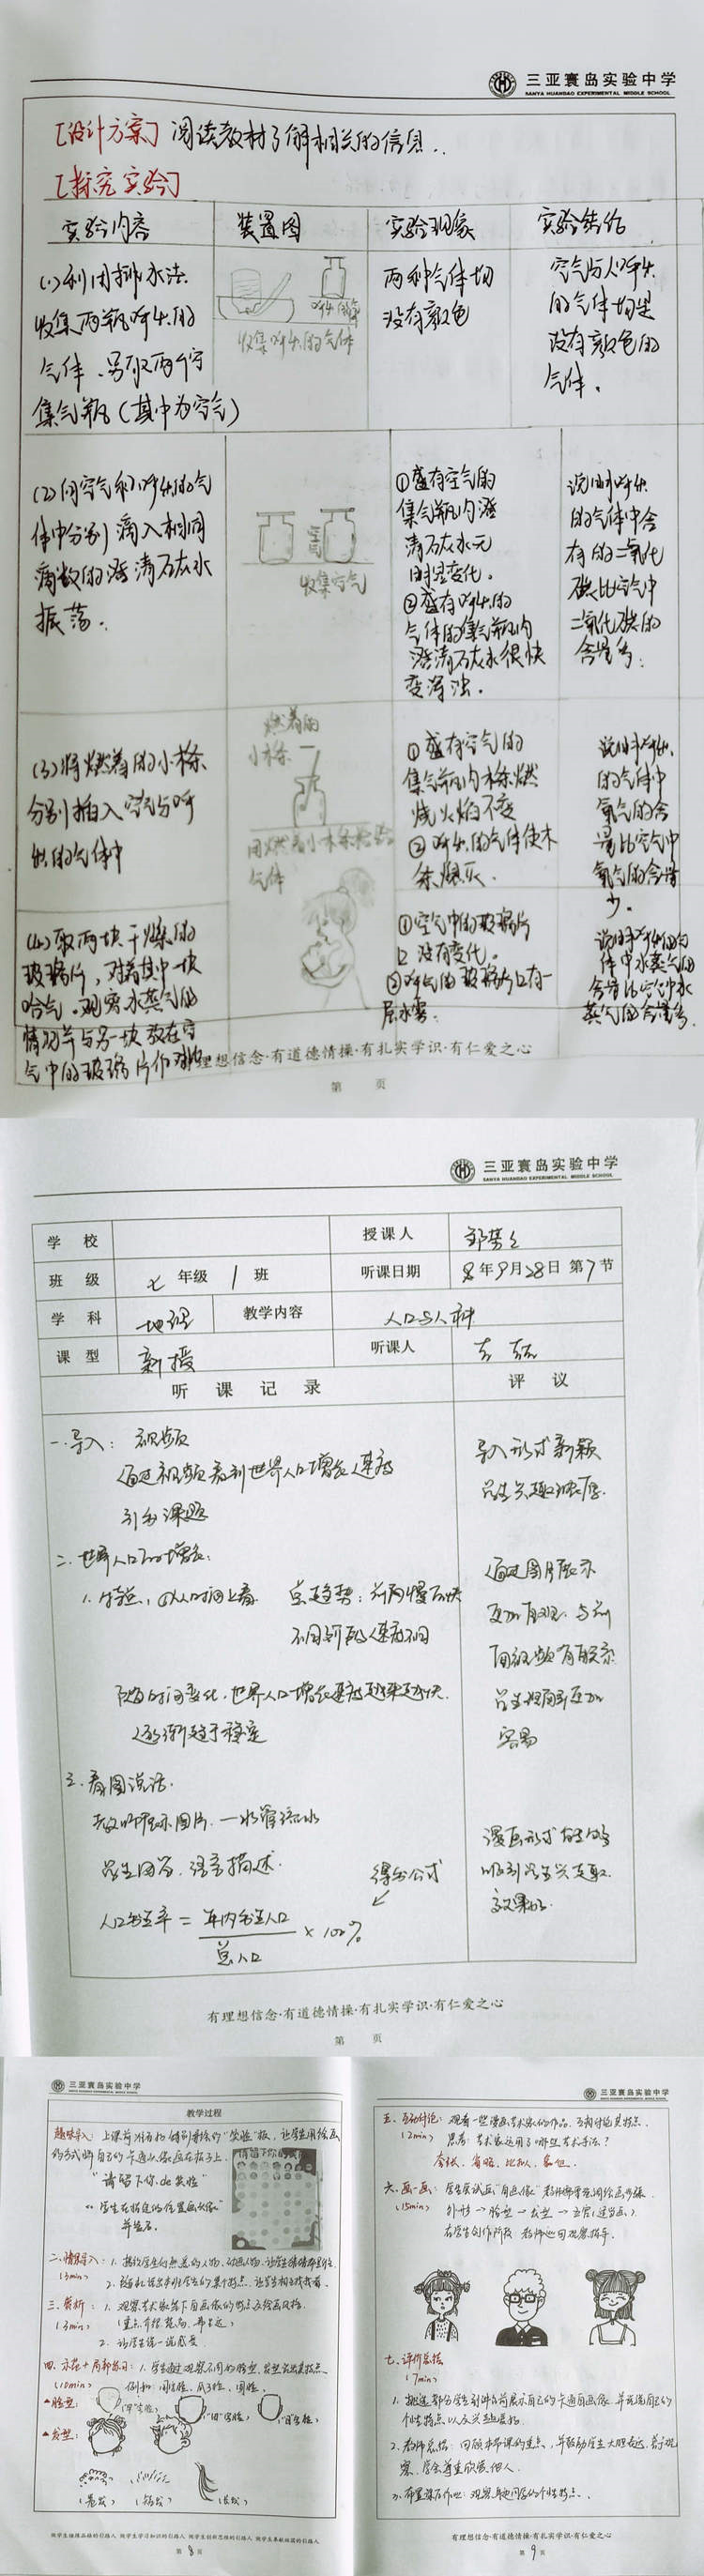 三亚寰岛实验中学
SANYA HUANDAO EXPERIMENTAL MIDDLE SCHOOL
[设计方案] 阅读教材了解相关的信息..
[探究实验]
实验内容 装置图 实验现象 实验结论
(1)利用排水法
收集两瓶呼出的
气体、另取两个空
集气瓶(其中为空气)
呼出的气体
收集呼出的气体
两种气体均
没有颜色
空气与人呼出
的气体均是
没有颜色的
气体.
(2)向空气和呼出的气
体中分别滴入相同
滴数的澄清石灰水
振荡.
收集空气
①盛有空气的
集气瓶内澄
清石灰水无
明显变化.
②盛有呼出的
气体的集气瓶内
澄清石灰水很快
变浑浊.
说明呼出
的气体中含
有的二氧化
碳比空气中
二氧化碳的
含量多;
(3)将燃着的小木条
分别插入空气与呼
出的气体中
燃着的
小木条
用燃着小木条检验
气体
①盛有空气的
集气瓶内木条燃
烧火焰不变
②呼出的气体使木
条熄灭.
说明呼出
的气体中
氧气的含
量比空气中
氧气的含量
少.
(4)取两块干燥的
玻璃片,对着其中一块
哈气.观察水蒸气的
情况并与另一块放在空
气中的玻璃片作对比
①空气中的玻璃片
没有变化.
②呼气的玻璃片上有一
层水雾.
说明呼出的气
体中水蒸气的
含量比空气中水
蒸气的含量多.
理想信念·有道德情操·有扎实学识·有仁爱之心
第 页
三亚寰岛实验中学
SANYA HUANDAO EXPERIMENTAL MIDDLE SCHOOL
学 校 授课人
班 级 七 年级 1 班 听课日期 年9月28日 第7节
学 科 地理 教学内容 人口与人种
课 型 新授 听课人
听 课 记 录 评 议
一.导入: 视频
通过视频看到世界人口增长速度
引出课题
导入形式新颖
学生兴趣浓厚.
二.世界人口的增长:
1.特征: ①从时间上看 总趋势:前两慢后快
不同阶段速度不同
随时间变化.世界人口增长速度越来越快.
逐渐趋于稳定
通过图片展示
更加直观.与前
面视频有联系
学生理解更加
容易
三.看图说话.
教师展示图片.一水管流水
学生回答.语言描述.
得出公式
人口出生率 = 年内出生人口 × 100%
总人口
漫画形式能够
吸引学生兴趣.
效果好.
有理想信念·有道德情操·有扎实学识·有仁爱之心
第 页
三亚寰岛实验中学
教学过程
趣味导入: 上课前准备好特别署绘的“笑脸”板,让学生用绘画
的方式将自己的卡通头像画在板子上.
“请留下你de笑脸”
学生在指定的位置画头像
并签名.
(3min)
三、赏析: 1. 观察艺术家笔下自画像的特点及绘画风格.
(3min)
2. 让学生说一说感受
四、示范+局部练习: 1. 学生通过观察不同的脸型、发型说出其特点.
(10min) 例如: 国字脸、瓜子脸、圆脸.
脸型:
发型:
(卷发) (短发) (长发)
第 8 页
三亚寰岛实验中学
五、互动讨论: 观看一些漫画艺术家的作品.互相讨论其特点.
(2min) 思考: 艺术家运用了哪些艺术手法?
夸张、省略、比拟、象征.
六、画一画: 学生尝试画“自画像” 教师带呈强调绘画步骤.
(15min) 外形→脸型→发型→五官(适当画)
在学生创作阶段 教师巡回观察指导.
七、评价总结
(7min)
1. 挑选部分学生到讲台前展示自己的卡通自画像.并说说自己的
个性特点以及兴趣爱好.
2. 教师总结: 回顾本节课的重点,并鼓励学生大胆表达、善于观
察、学会尊重欣赏他人.
3. 布置课后作业: 观察身边同学的个性特点.
有理想信念·有道德情操·有扎实学识·有仁爱之心
第 9 页